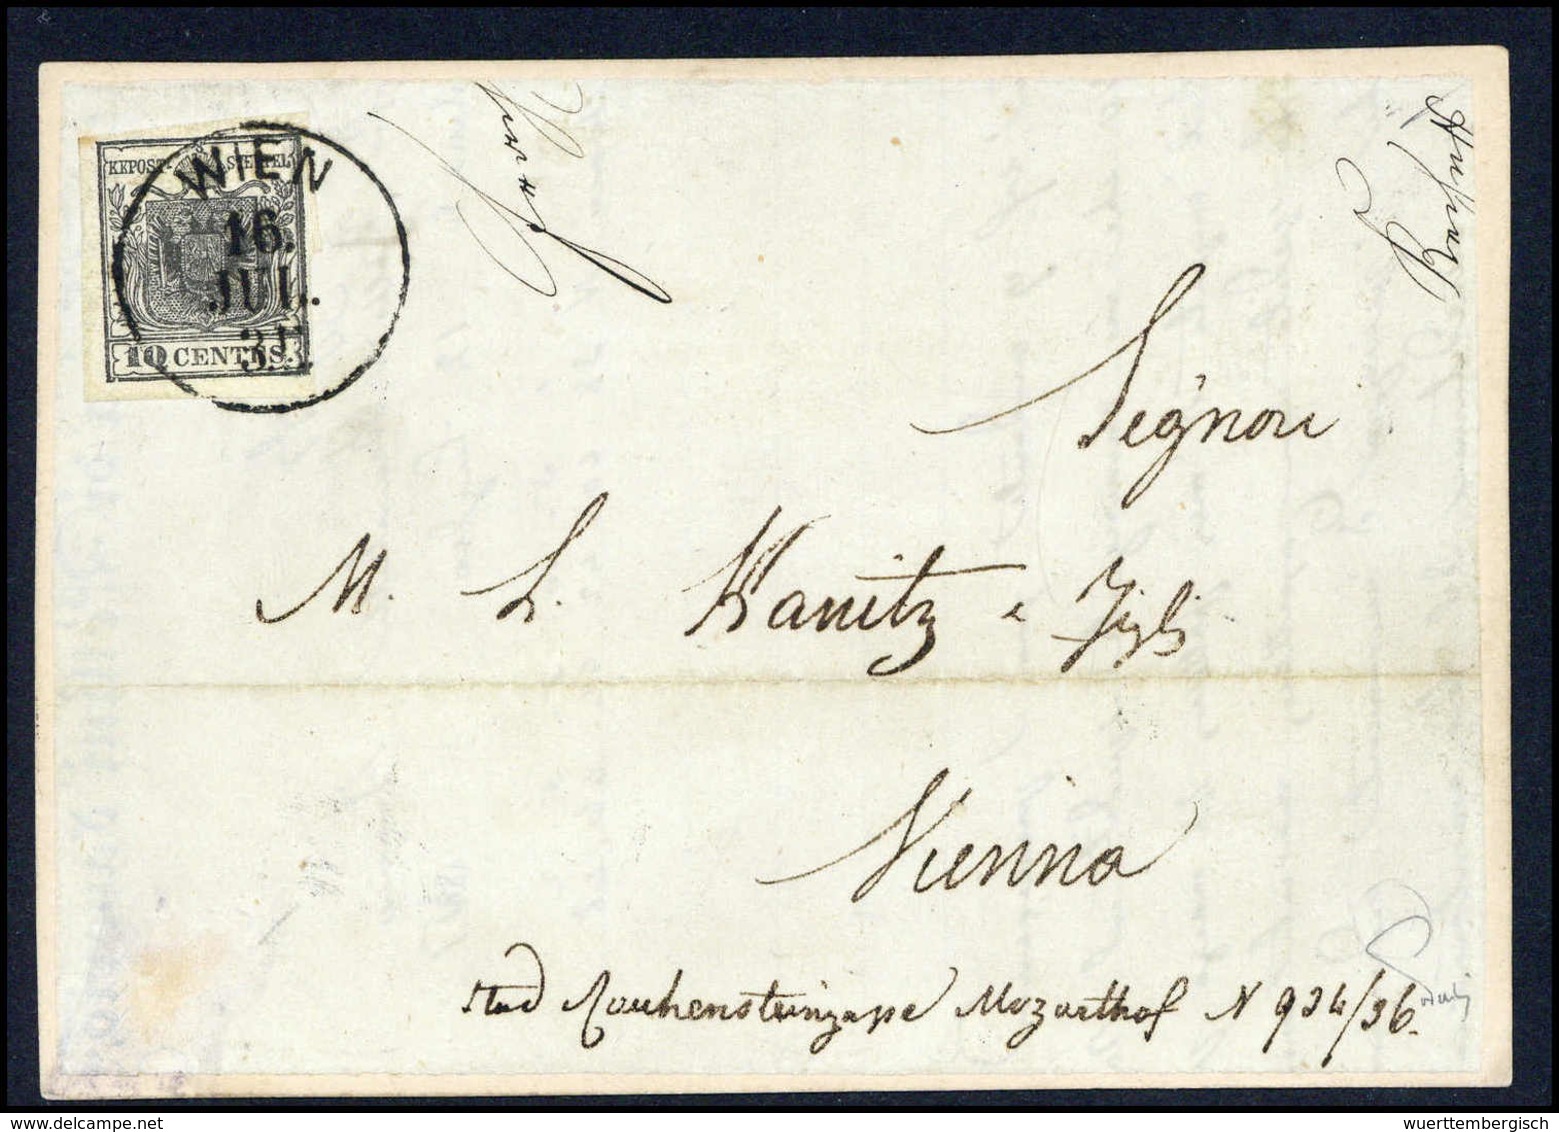 KKPOST- STEMPEL
WIEN
16.
JUL.
10 CENTES.
Signori
M. L. Kanitz e Figli
Vienna
Stad Rauhensteingasse Mozarthof N 934/36.
wuerttembergisch